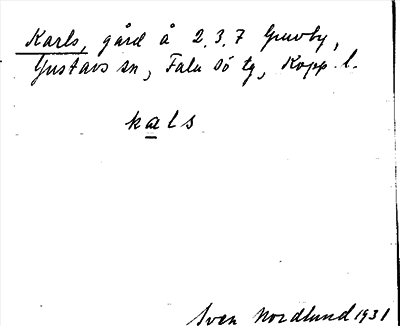 Karls, gård å 2.3.7 Gruvby,
Gustavs sn, Falu sö tg, Kopp. l.
kals
Sven Nordlund 1931